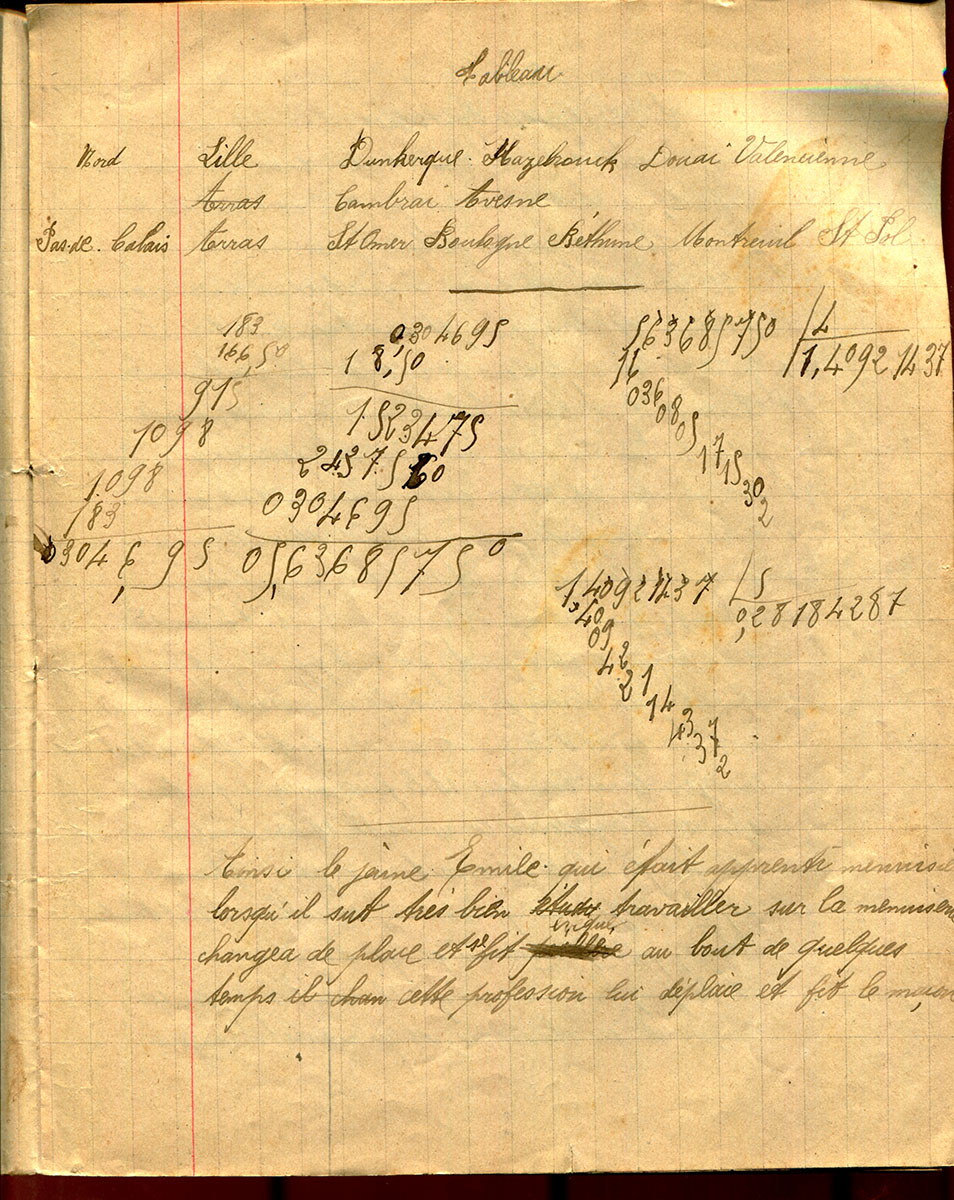 Tableau
Nord Lille Dunkerque Hazebrouck Douai Valencienne
Arras Cambrai Avesne
Pas-de-Calais Arras St Omer Boulogne Béthune Montreuil St Pol
183
166,50
915
1098
1098
183
0304 6,95
0,304695
18,50
1523475
2437560
0304695
05,63685750
563685750 4
16 1,40921437
036
08
05
17
15
30
2
140921437 5
,40 0,28184287
09
42
21
14
43
37
2
Ainsi le jeune Emile qui était apprenti menuisie
lorsqu'il sut très bien travailler sur la menuiserie
changea de place et se fit au bout de quelques
temps il chan cette profession lui déplaie et fit le maçon